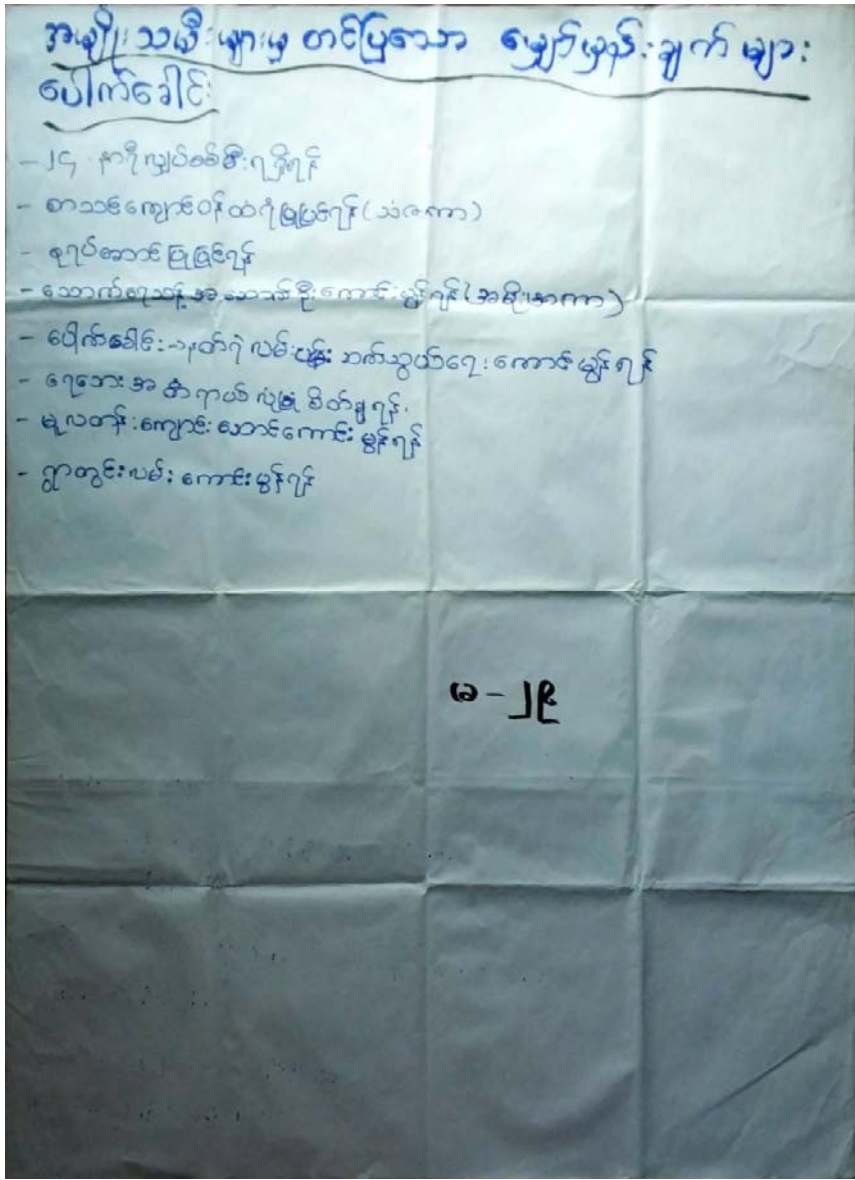 အမျိုးသမီးများမှ တင်ပြသော မျှော်မှန်းချက် များ
ပေါက်ခေါင်း
- ၂၄ နာရီလျှပ်စစ်မီးရရှိရန်
- စာသင်ကျောင်းဝန်ထံရံပြုပြင်ရန် (သံဇကာ)
- ဇရပ်ဆောင်ပြုပြင်ရန်
- သောက်ရေသန့်အဆောက်ဦးကောင်းမွန်ရန် (အမိုးအကာ)
- ပေါက်ခေါင်း လမ်းပန်း ဆက်သွယ်ရေးကောင်းမွန်ရန်
- ရေဘေးအန္တရာယ်လုံခြုံစိတ်ချရန်.
- မူလတန်းကျောင်းဆောင်ကောင်းမွန်ရန်
- ရွာတွင်းလမ်းကောင်းမွန်ရန်
ခ - ၂၉